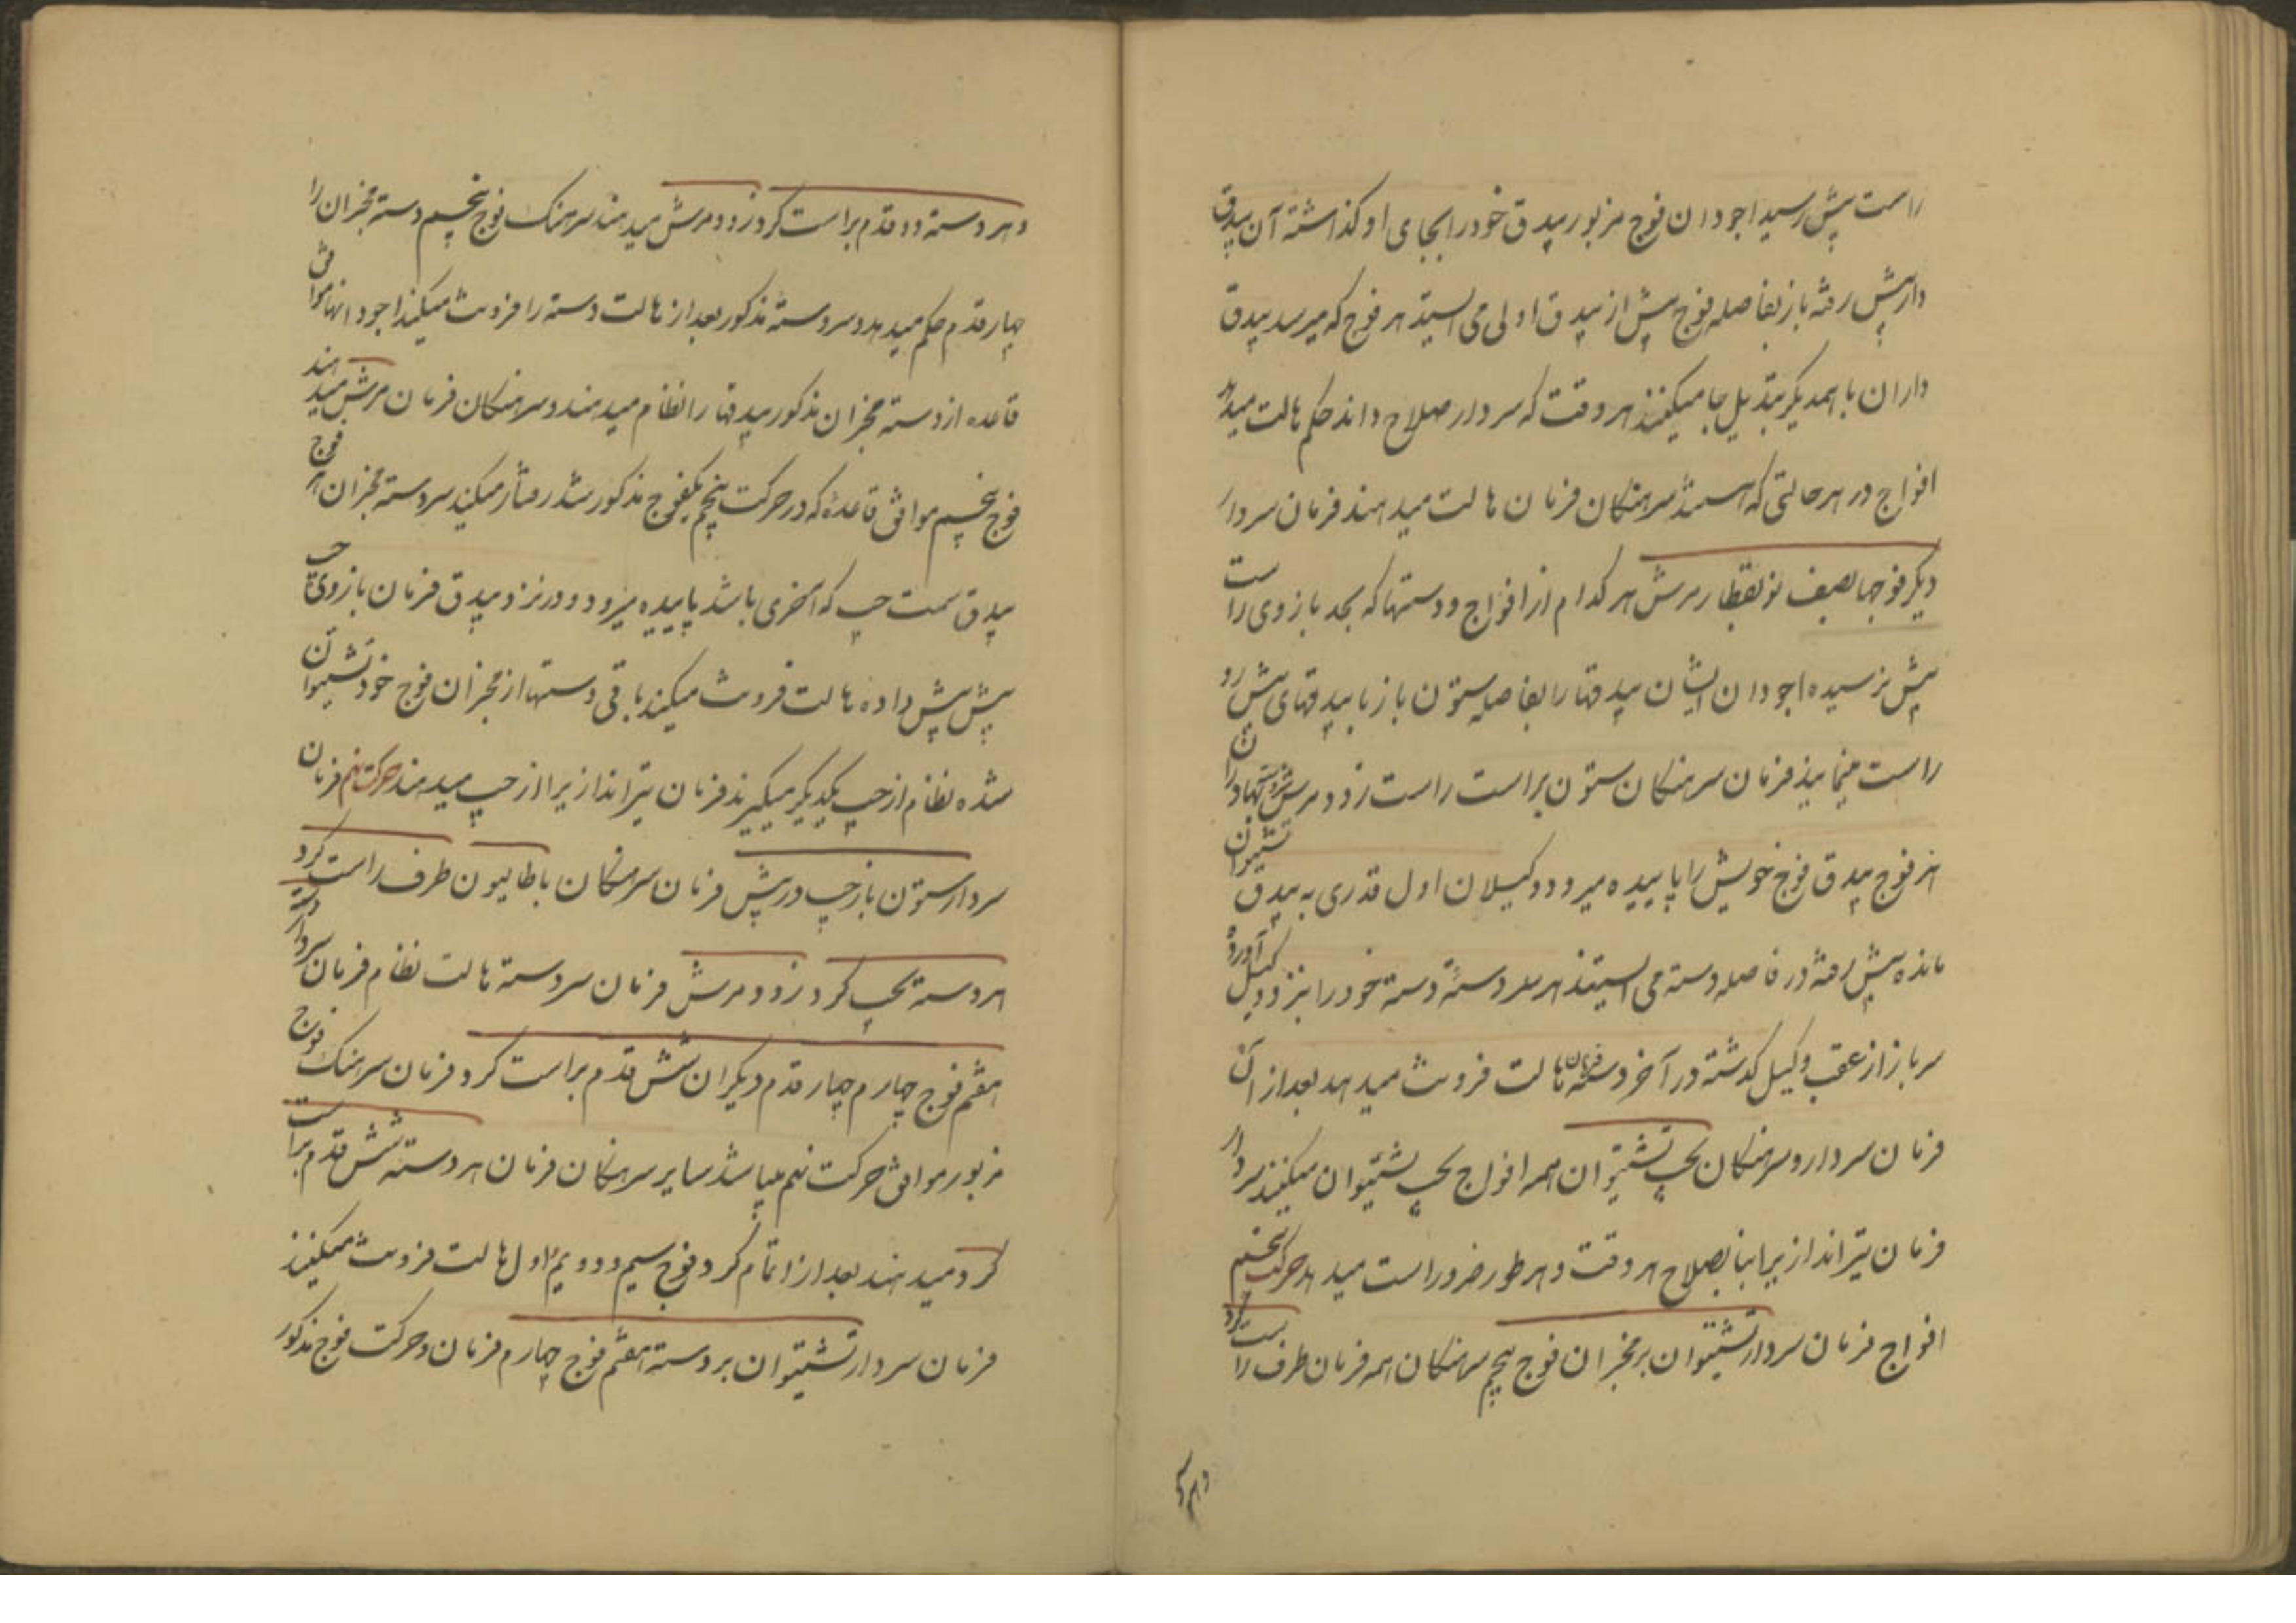 راست پیش رسید اجودان فوج مزبور بیدق خود را بجای او کذاشته آن بیدق
دار پیش رفته باز بفاصله فوج پیش از بیدق اولی می ایستد هر فوج که میرسد بیدق
داران با همدیکر تبدیل جا میکنند هر وقت که سردار صلاح داند حکم هالت میدهد
افواج در هر حالتی که هستند سرهنکان فرمان هالت میدهند فرمان سردار
دیکر فوجها بصف نو بقطار مرش هر کدام از افواج و دستها که بحد بازوی راست
پیش نرسیده اجودان ایشان بیدقها را بفاصله ستون باز با بیدقهای پیش رو
راست مینمایند فرمان سرهنکان ستون براست راست زود مرش
هر فوج بیدق فوج خویش را پاییده میرود و وکیلان اول قدری به بیدق
مانده پیش رفته در فاصله دسته می ایستند هر سردسته دسته خود را بنزد وکیل آورده
سرباز از عقب وکیل کذشته در آخر دسته فرمان هالت فرونت میدهد بعد از آن
فرمان سردار و سرهنکان بچپ تشتیوان همه افواج بچپ تشتیوان میکنند سردار
فرمان تیراندازیرا بنا بصلاح هر وقت و هر طور ضرور است میدهد حرکت هشتم
افواج فرمان سردار تشتیوان بر مخبران فوج پنجم سرهنکان همه فرمان طرف راست کرد
و هر دسته
و هر دسته دو قدم براست کرد زود مرش میدهند سرهنک فوج پنجم دسته مخبران را
چهار قدم حکم میدهد و سردسته مذکور بعد از هالت دسته را فرونت میکند اجودانها موافق
قاعده از دسته مخبران مذکور بیدقها را نظام میدهند و سرهنکان فرمان مرش میدهند
فوج پنجم موافق قاعدهٔ که در حرکت پنجم یکفوج مذکور شد رفتار میکند سردسته مخبران هر فوج
بیدق سمت چپ که آخری باشد پاییده میرود و در نزد بیدق فرمان بازوی چپ
پیش پیش داده هالت فرونت میکند باقی دستها از مخبران فوج خود تشتیوان
شده نظام از چپ یکدیکر میکیرند فرمان تیراندازیرا از چپ میدهند حرکت نهم فرمان
سردار ستون باز چپ در پیش فرمان سرهنکان باطالیون طرف راست کرد
هر دسته بچپ کرد زود مرش فرمان سردسته هالت نظام فرمان سردار دسته
هفتم فوج چهارم چهار قدم دیکران شش قدم براست کرد فرمان سرهنک فوج
مزبور موافق حرکت نهم میباشد سایر سرهنکان فرمان هر دسته شش قدم براست
کرد میدهند بعد از اتمام کرد فوج سیم و دویم و اول هالت فرونت میکنند
فرمان سردار تشتیوان بر دسته هفتم فوج چهارم فرمان و حرکت فوج مذکور